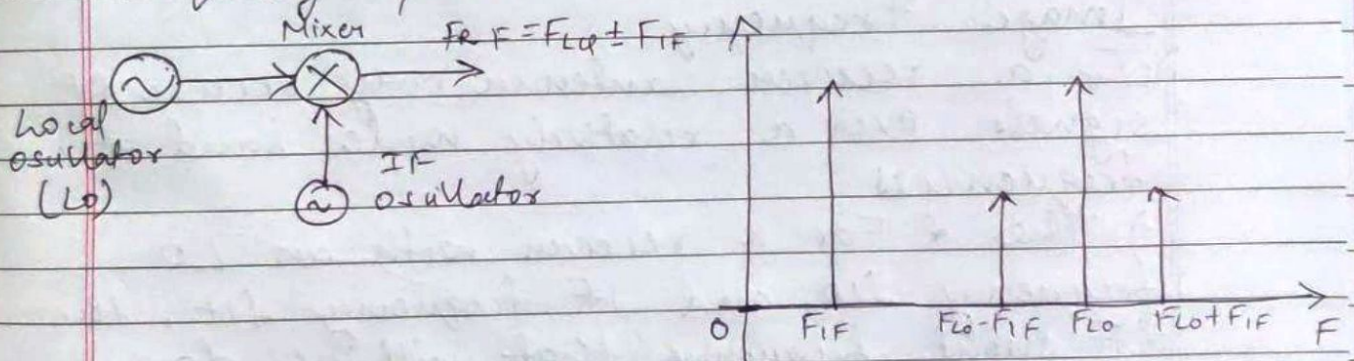 Mixer
FRF = FLO ± FIF
Local
oscillator
(LO)
IF
oscillator
0 FIF FLO-FIF FLO FLO+FIF F